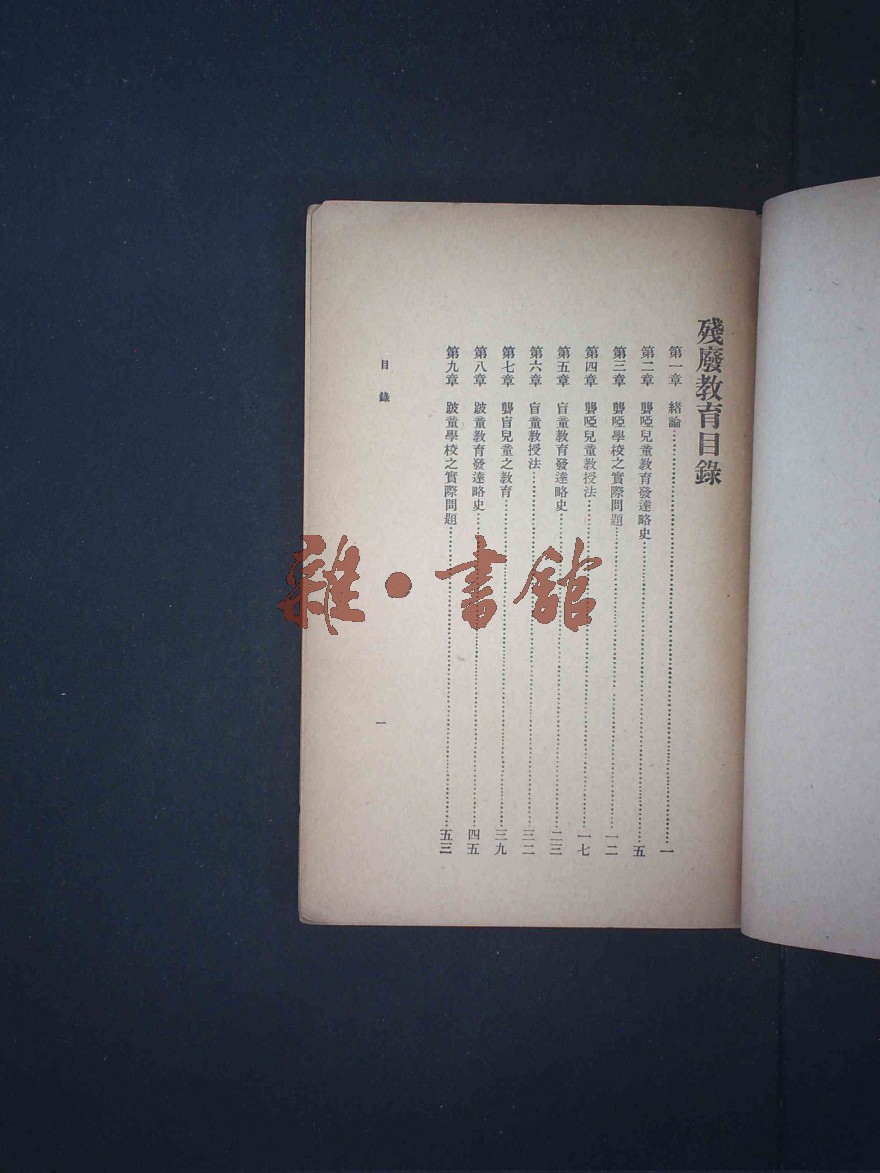 殘廢教育目錄
第一章 緒論 一
第二章 聾啞兒童教育發達略史 五
第三章 聾啞學校之實際問題 一二
第四章 聾啞兒童教授法 一七
第五章 盲童教育發達略史 二三
第六章 盲童教授法 三二
第七章 聾盲兒童之教育 三九
第八章 跛童教育發達略史 四五
第九章 跛童學校之實際問題 五三
目錄 一
雜·書館